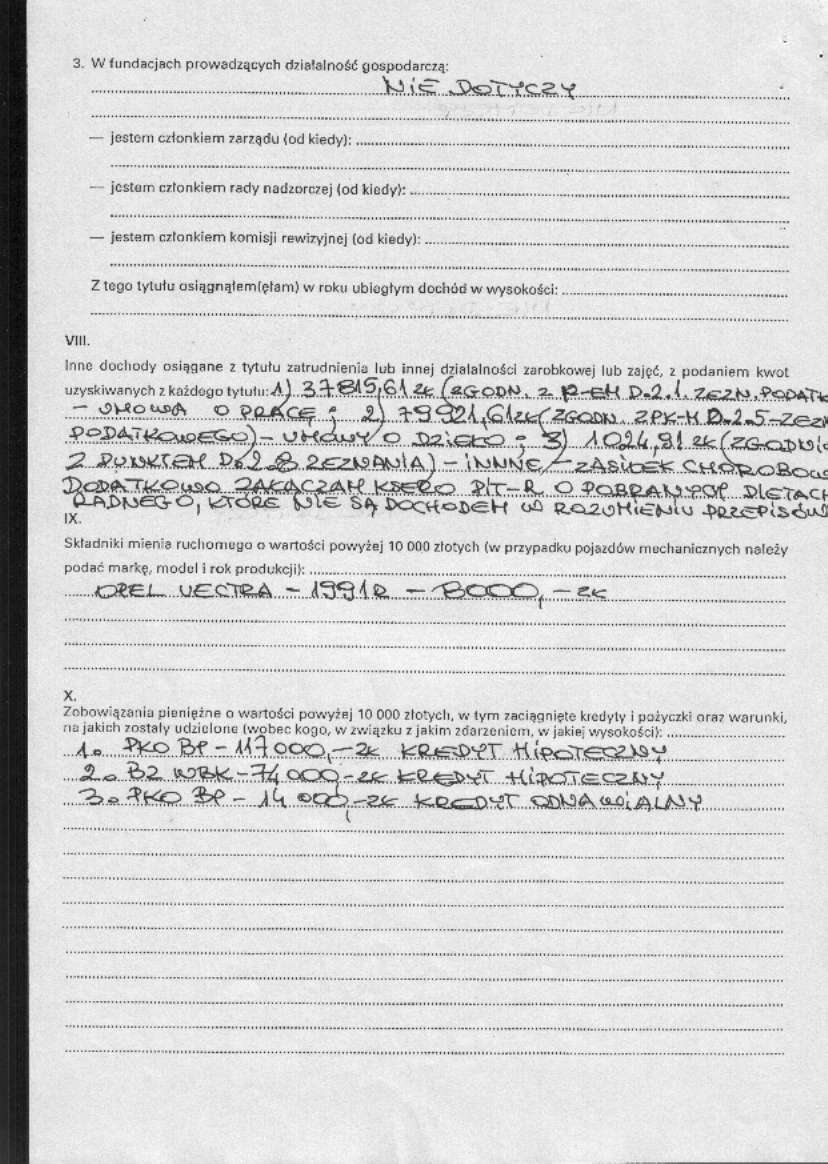 3. W fundacjach prowadzących działalność gospodarczą:
NIE DOTYCZY
— jestem członkiem zarządu (od kiedy):
— jestem członkiem rady nadzorczej (od kiedy):
— jestem członkiem komisji rewizyjnej (od kiedy):
Z tego tytułu osiągnąłem(ęłam) w roku ubiegłym dochód w wysokości:
VIII.
Inne dochody osiągane z tytułu zatrudnienia lub innej działalności zarobkowej lub zajęć, z podaniem kwot
uzyskiwanych z każdego tytułu: 1) 37815,61 ZŁ (ZGODN. Z P-EM D.2.1. ZEZN. PODATK
- UMOWA O PRACĘ; 2) 79921,61ZŁ (ZGODN. Z PK-M D.2.5-ZEZN
PODATKOWEGO) - UMOWY O DZIEŁO; 3) 1024,91 ZŁ (ZGODNIE
Z PUNKTEM D.2.8 ZEZNANIA) - INNNE - ZASIŁEK CHOROBOW
DODATKOWO ZAŁĄCZAM KSERO PIT-R O POBRANYCH DIETACH
RADNEGO, KTÓRE NIE SĄ DOCHODEM W ROZUMIENIU PRZEPISÓW
IX.
Składniki mienia ruchomego o wartości powyżej 10 000 złotych (w przypadku pojazdów mechanicznych należy
podać markę, model i rok produkcji):
OPEL VECTRA - 1991R - 8000,- ZŁ
X.
Zobowiązania pieniężne o wartości powyżej 10 000 złotych, w tym zaciągnięte kredyty i pożyczki oraz warunki,
na jakich zostały udzielone (wobec kogo, w związku z jakim zdarzeniem, w jakiej wysokości):
1. PKO BP - 117 000,- ZŁ KREDYT HIPOTECZNY
2. BZ WBK - 74 000,- ZŁ KREDYT HIPOTECZNY
3. PKO BP - 14 000,- ZŁ KREDYT ODNAWIALNY